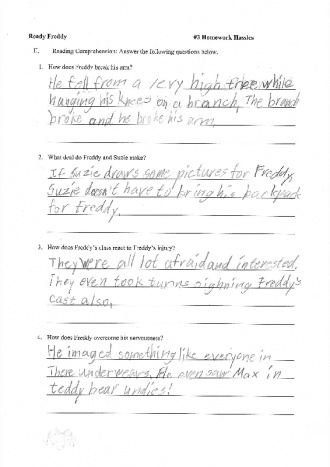 Ready Freddy #3 Homework Hassles
E. Reading Comprehension: Answer the following questions below.
1. How does Freddy break his arm?
He fell from a very high tree while
hanging his knees on a branch. The branch
broke and he broke his arm.
2. What deal do Freddy and Suzie make?
If Suzie draws some pictures for Freddy,
Suzie doesn't have to bring his backpack
for Freddy.
3. How does Freddy's class react to Freddy's injury?
They were all lot afraid and interested.
They even took turns sighning Freddy's
cast also.
4. How does Freddy overcome his nervousness?
He imaged something like everyone in
There underwears. He even saw Max in
teddy bear undies!